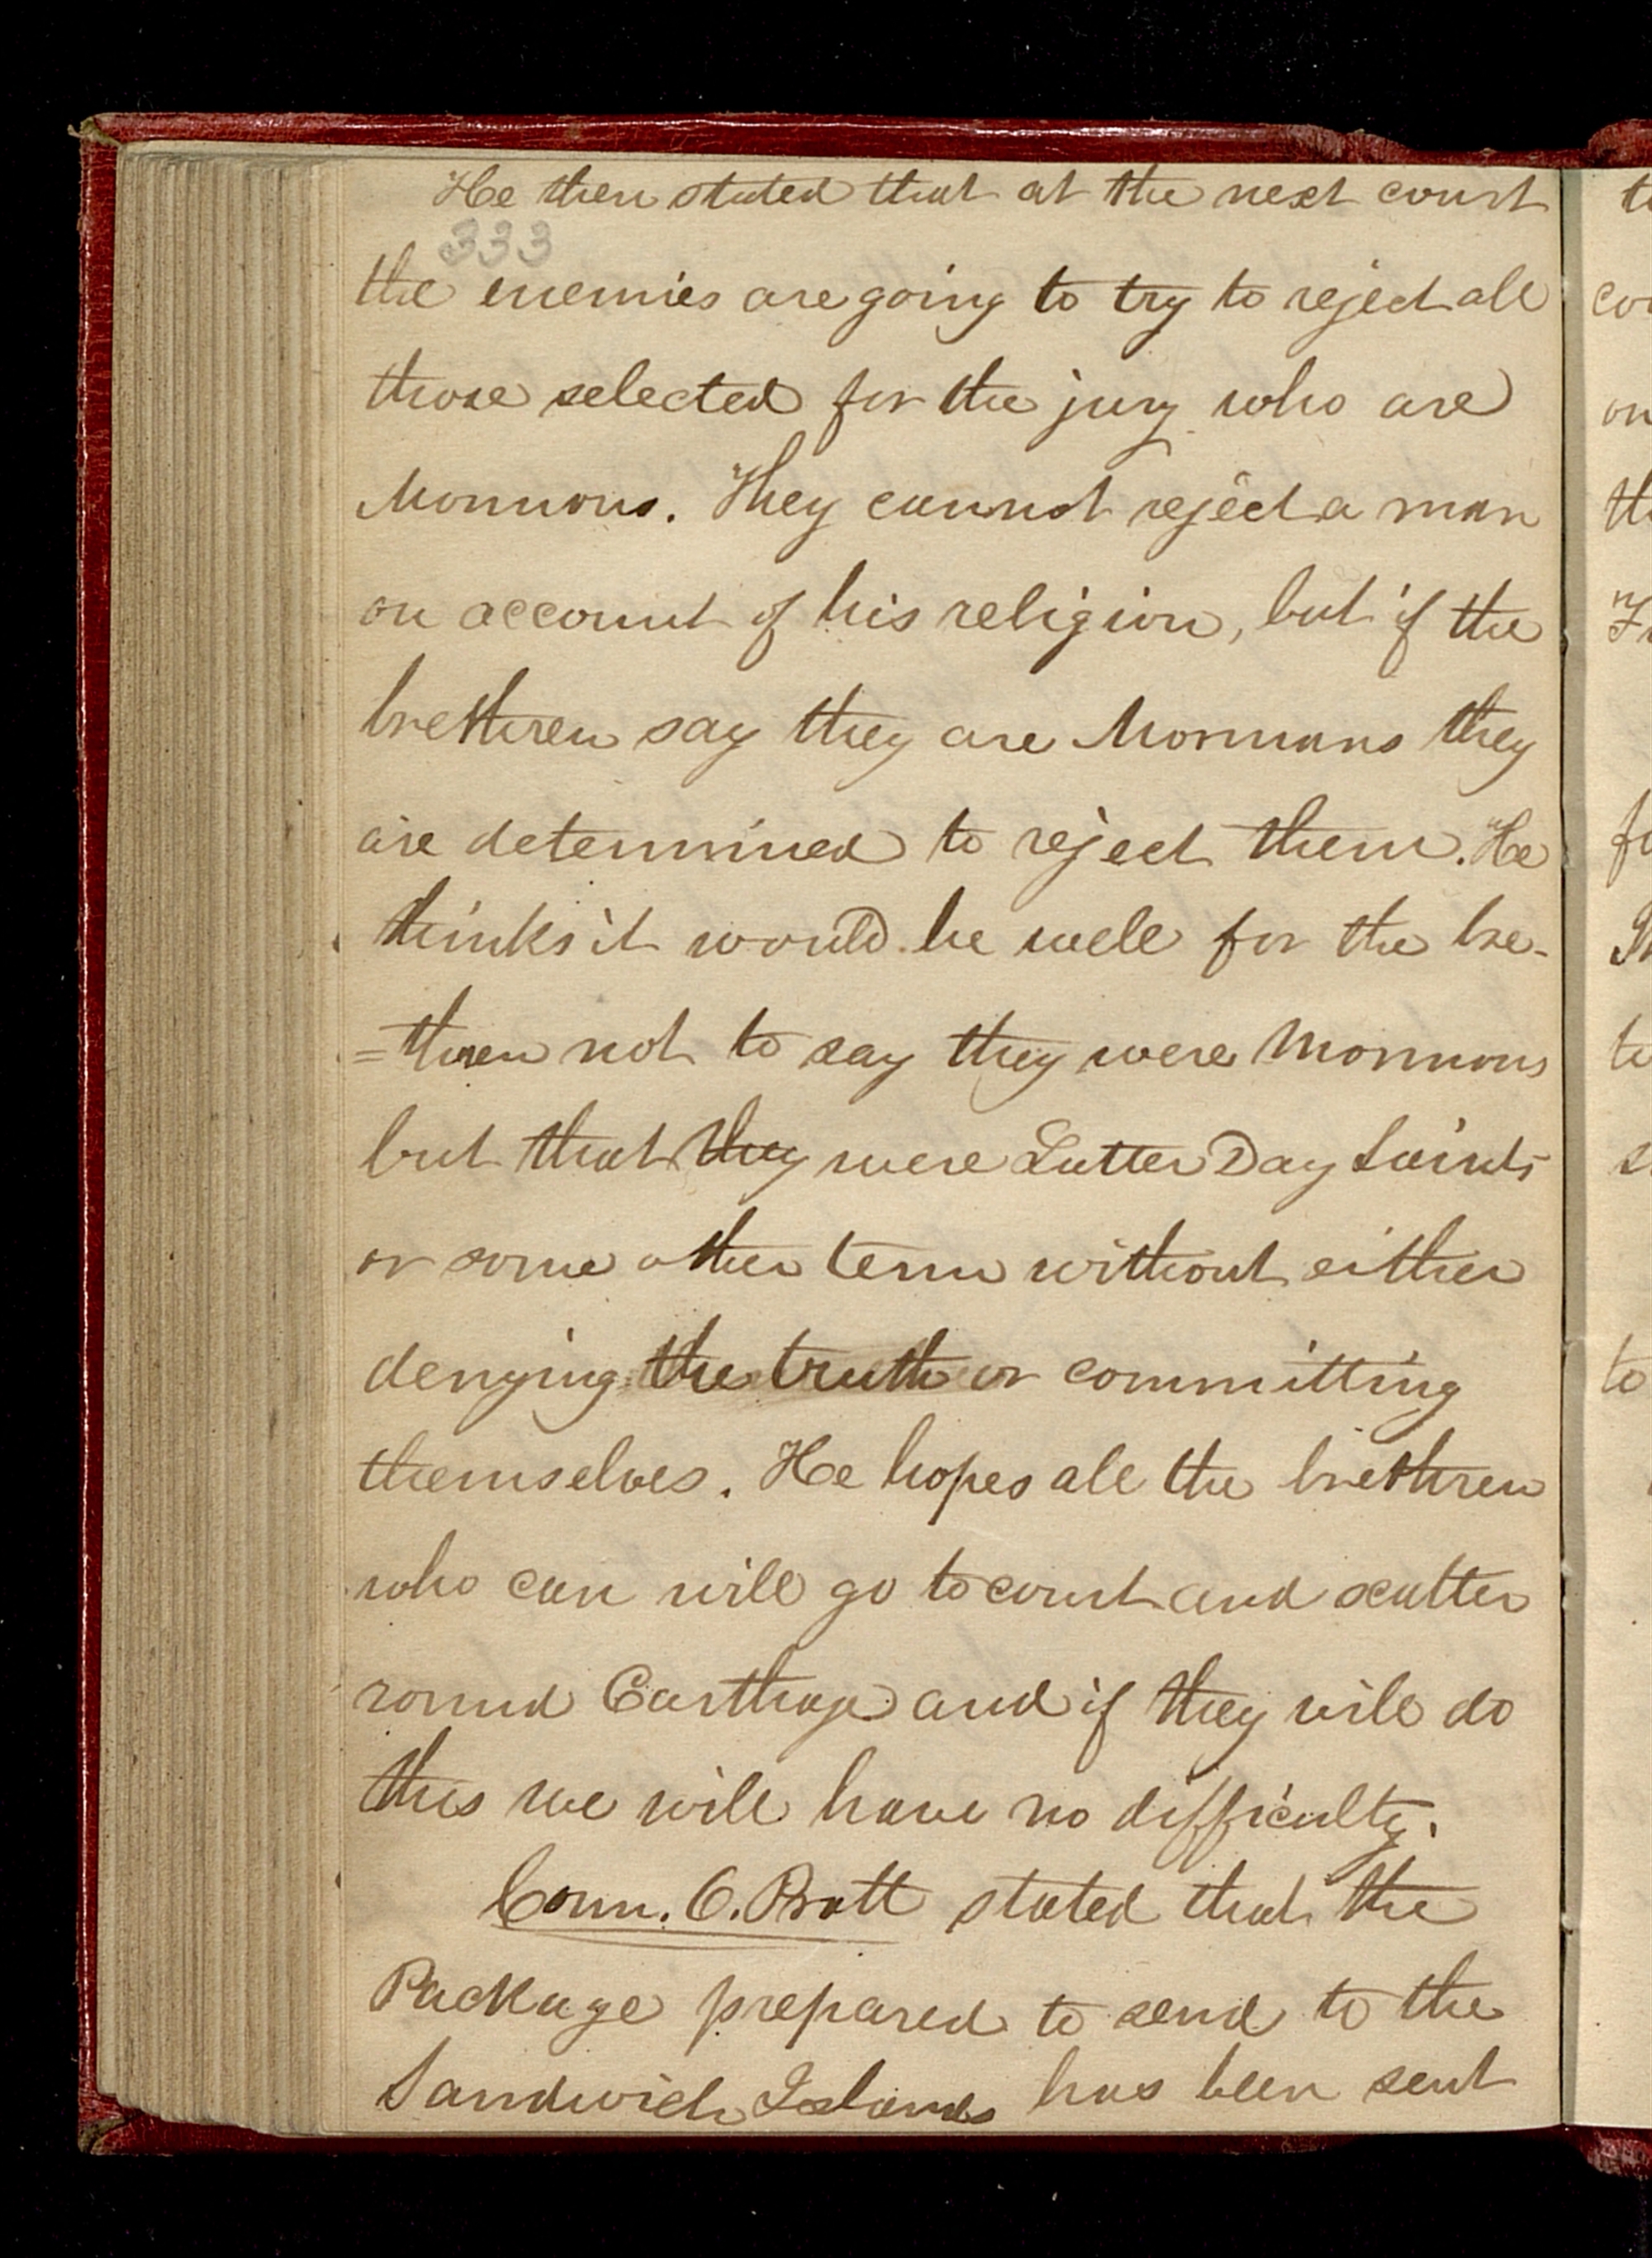 He then stated that at the next court
333
the enemies are going to try to reject all
those selected for the jury who are
Mormons. They cannot reject a man
on account of his religion, but if the
brethren say they are Mormons they
are determined to reject them. He
thinks it would be well for the bre-
=thren not to say they were Mormons
but that they were Latter Day Saints
or some other term without either
denying the truth or committing
themselves. He hopes all the brethren
who can will go to court and scatter
round Carthage and if they will do
this we will have no difficulty.
Coun. O. Pratt stated that the
Package prepared to send to the
Sandwich Islands has been sent